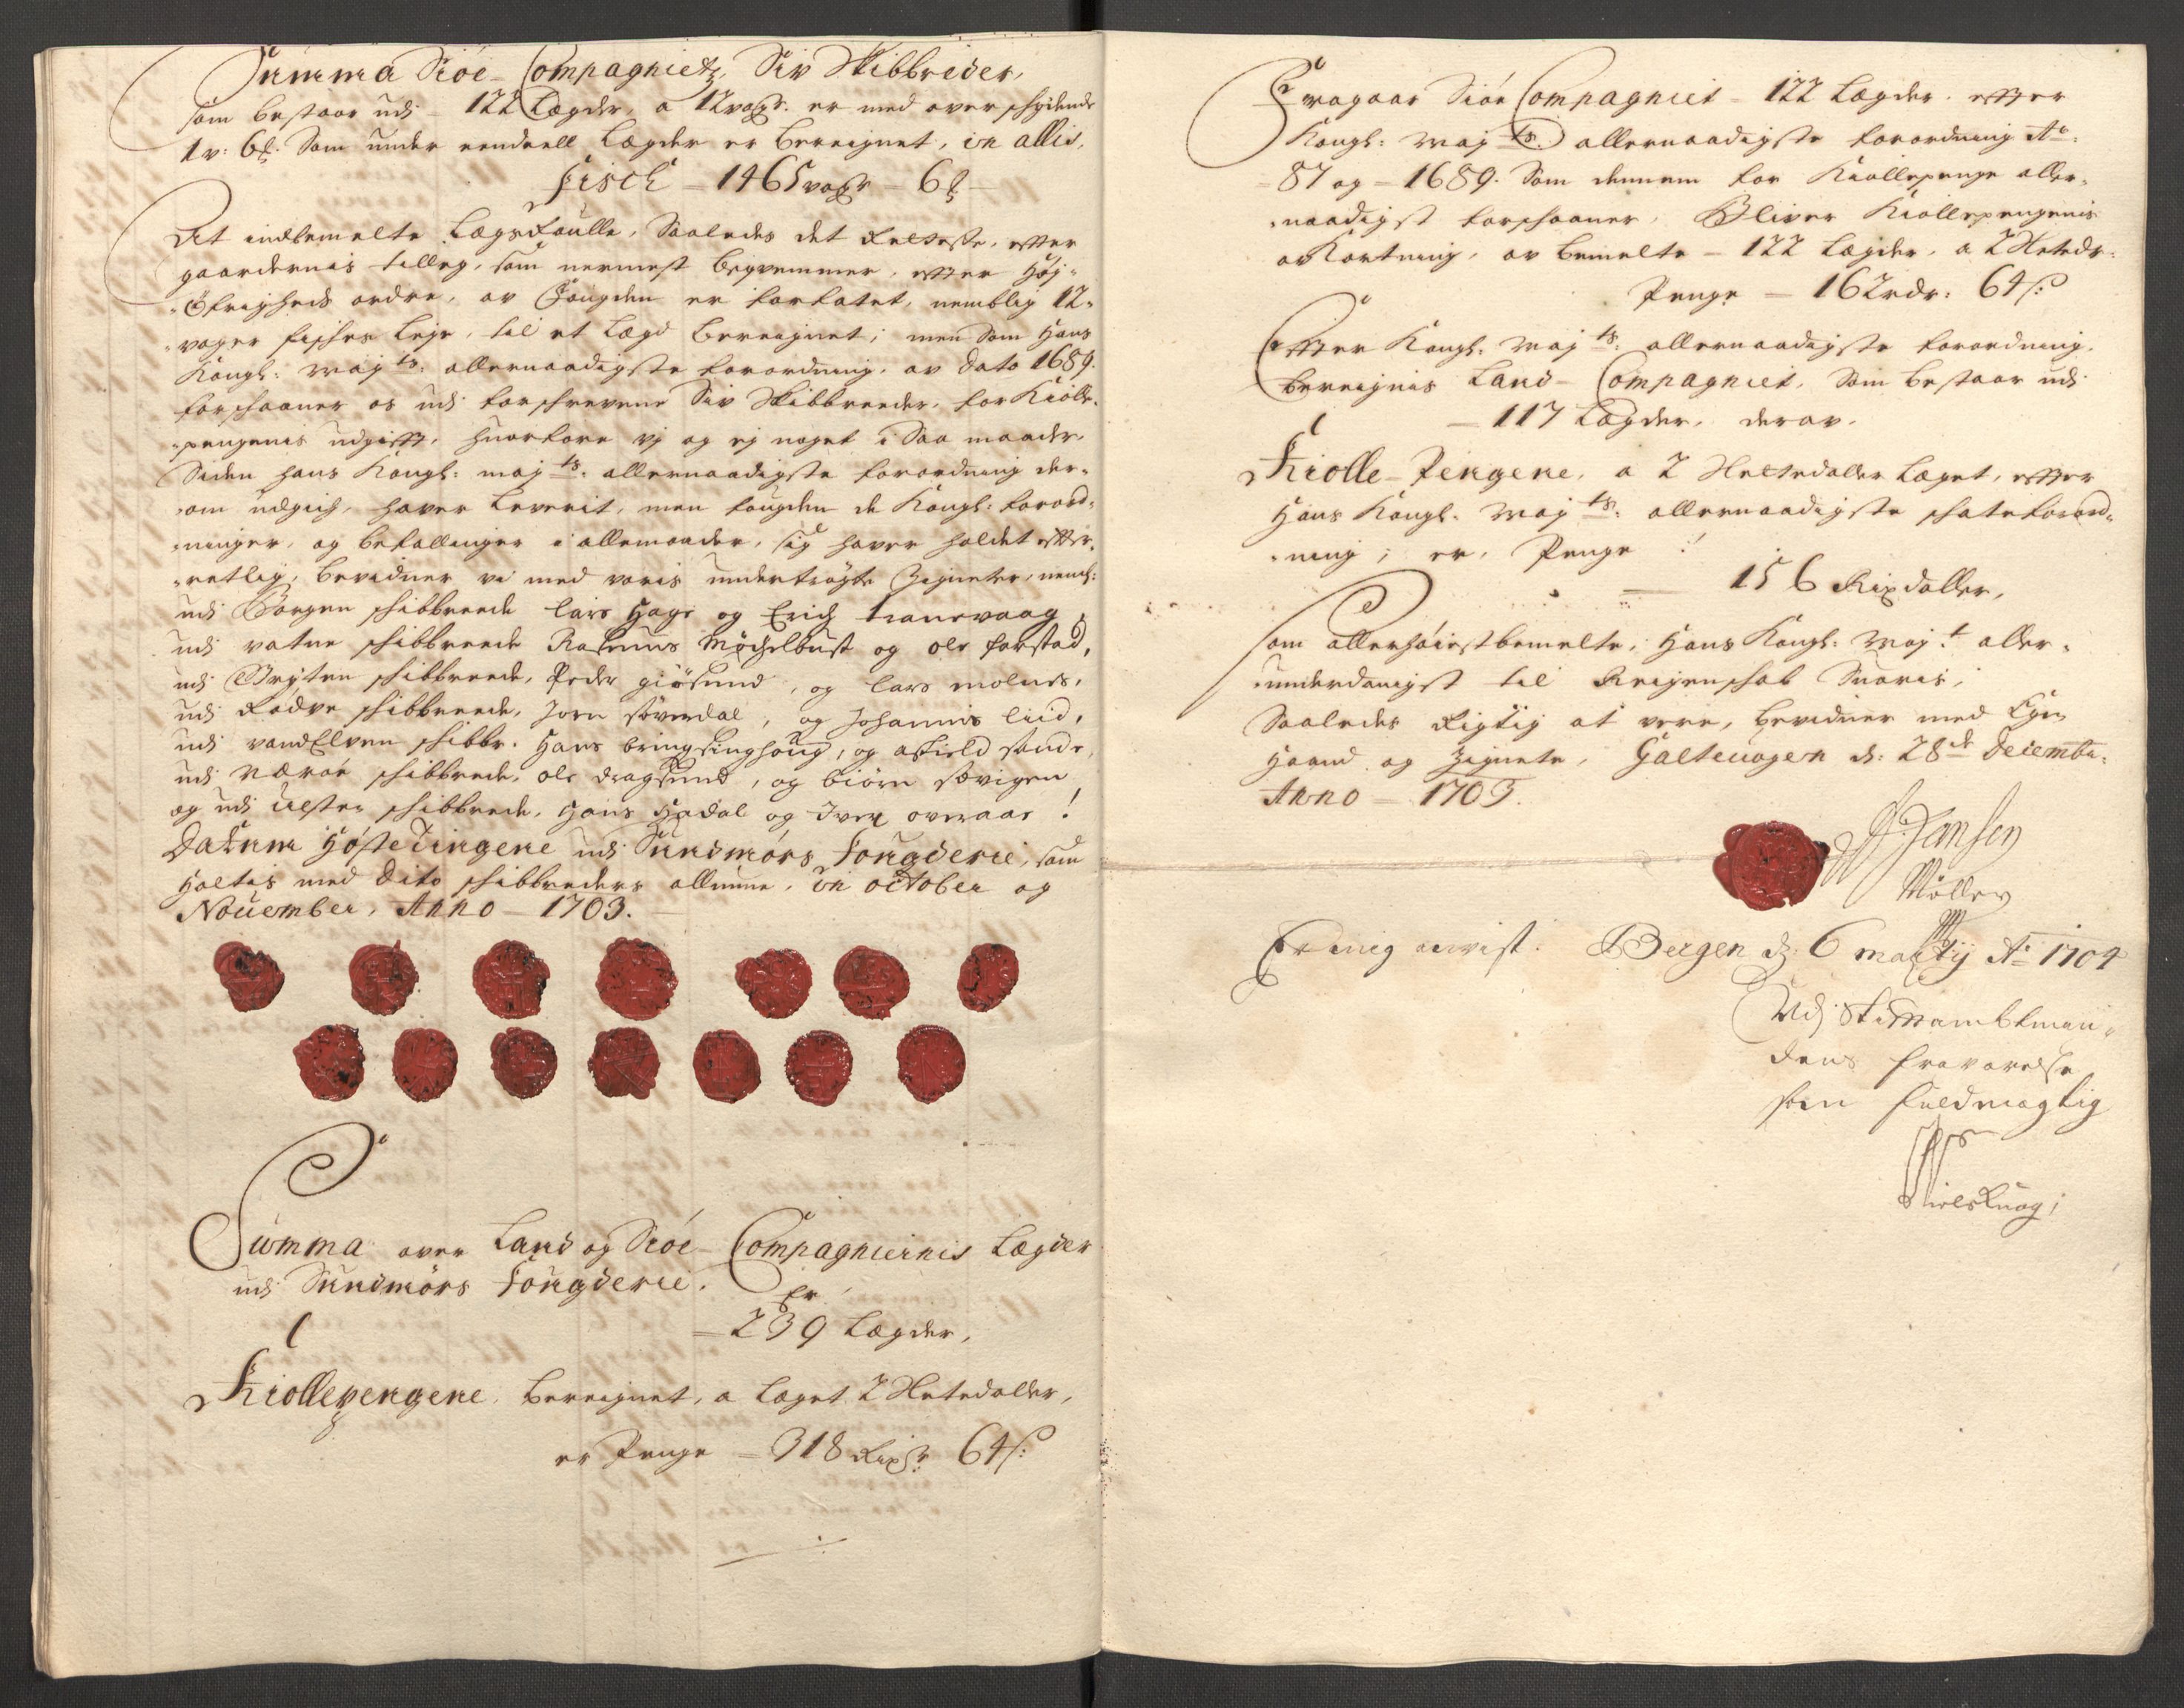 Summa Siöe-Compagnietz, Siv Skibbreder,
som bestaar udi - 122 Lægder, a 12 vogr: er med overschydende
1 v: 6 ℔. Som under eendeell Lægder er bereignet, in allis,
Fisch - 1465 vogr - 6 ℔
At indbemelte Lægsroulle, Saaledes det retteste, effter
gaardernis tilleg, som nermest beqvemmer, effter Høy-
Øfrigheds ordre, av Fougden er forfatet, nemblig 12
voger fisches leje, til et Lægd bereignet; men Som Hans
Kongl: Maj ts: allernaadigste forordning, av Dato 1689.
forschaaner os udi forschrevene Siv Skibbreeder, for Kiölle-
pengenis udgifft, huorfore vj og ej noget i Saa maader,
Siden hans Kongl: maj ts: allernaadigste forordning der-
om udgich, haver Leverit, men fougden de Kongl: forord-
ninger, og befallinger i allemaader, sig haver holdet effter-
retlig, bevidner vi med voris undertrögte Zigneter, neml:
udi Borgen schibbrede Lars Hage og Erich tranevaag,
udi vatne schibbrede Rasmus Möchelbust og ole farstad,
udi Brÿten schibbreede, Peder giösund, og Lars molnes,
udi Rodve schibbreede, Jorn söverdal, og Johannis liid,
udi vandElven schibbr. Hans bringsinghoug, og aschield sande,
udi Neröe schibbrede, ole dragsund, og biörn sævigen
og udi ulsten schibbrede, Hans Hadal og Iver overaae!
Datum Höstetingene udi Sundmörs Fougderie, som
Holtis med dito schibbreders allmue, in october og
Nouember, Anno - 1703.
Summa over Land og Siöe-Compagniernis Lægder
udi Sundmörs Fougderie. Er
- 239 Lægder,
Kiollepengene, bereignet, a Læget 2 Sletedaller,
er Penge - 318 Rixdr 64 s:
Fragaar Siöe Compagniet - 122 Lægder, effter
Kongl: Maj ts. allernaadigste forordning Ao:
87 og - 1689. Som dennem for Kiollepenge aller-
naadigst forschaaner, Bliver Kiollepengenis
avKortning, av bemelte - 122 Lægder, a 2 Sletedr:
Penge - 162 rdr: 64 s:
Effter Kongl: Maj ts: allernaadigste forordning,
bereignis Land-Compagniet, Som bestaar udi
- 117 Lægder, derav.
Kiolle-Pengene, a 2 Slettedaller Læget, effter
Hans Kongl: Maj ts: allernaadigste schateforord-
ning; er, Penge :
156 Rixdaller,
som allerhöiestbemelte, Hans Kongl: Maj:t aller-
underdanigst til Reigenschab Suaris,
Saaledes Rigtig at vere, bevidner med Egen
Haand og Zignete, Galteuogen d: 28de Decembr:
Anno - 1703.
Jensen
Möller
Er mig anvist. Bergen d: 6 martij Ao 1704
Udj Stifftambtman-
dens fraværelse
som fuldmægtig
Niels Knag